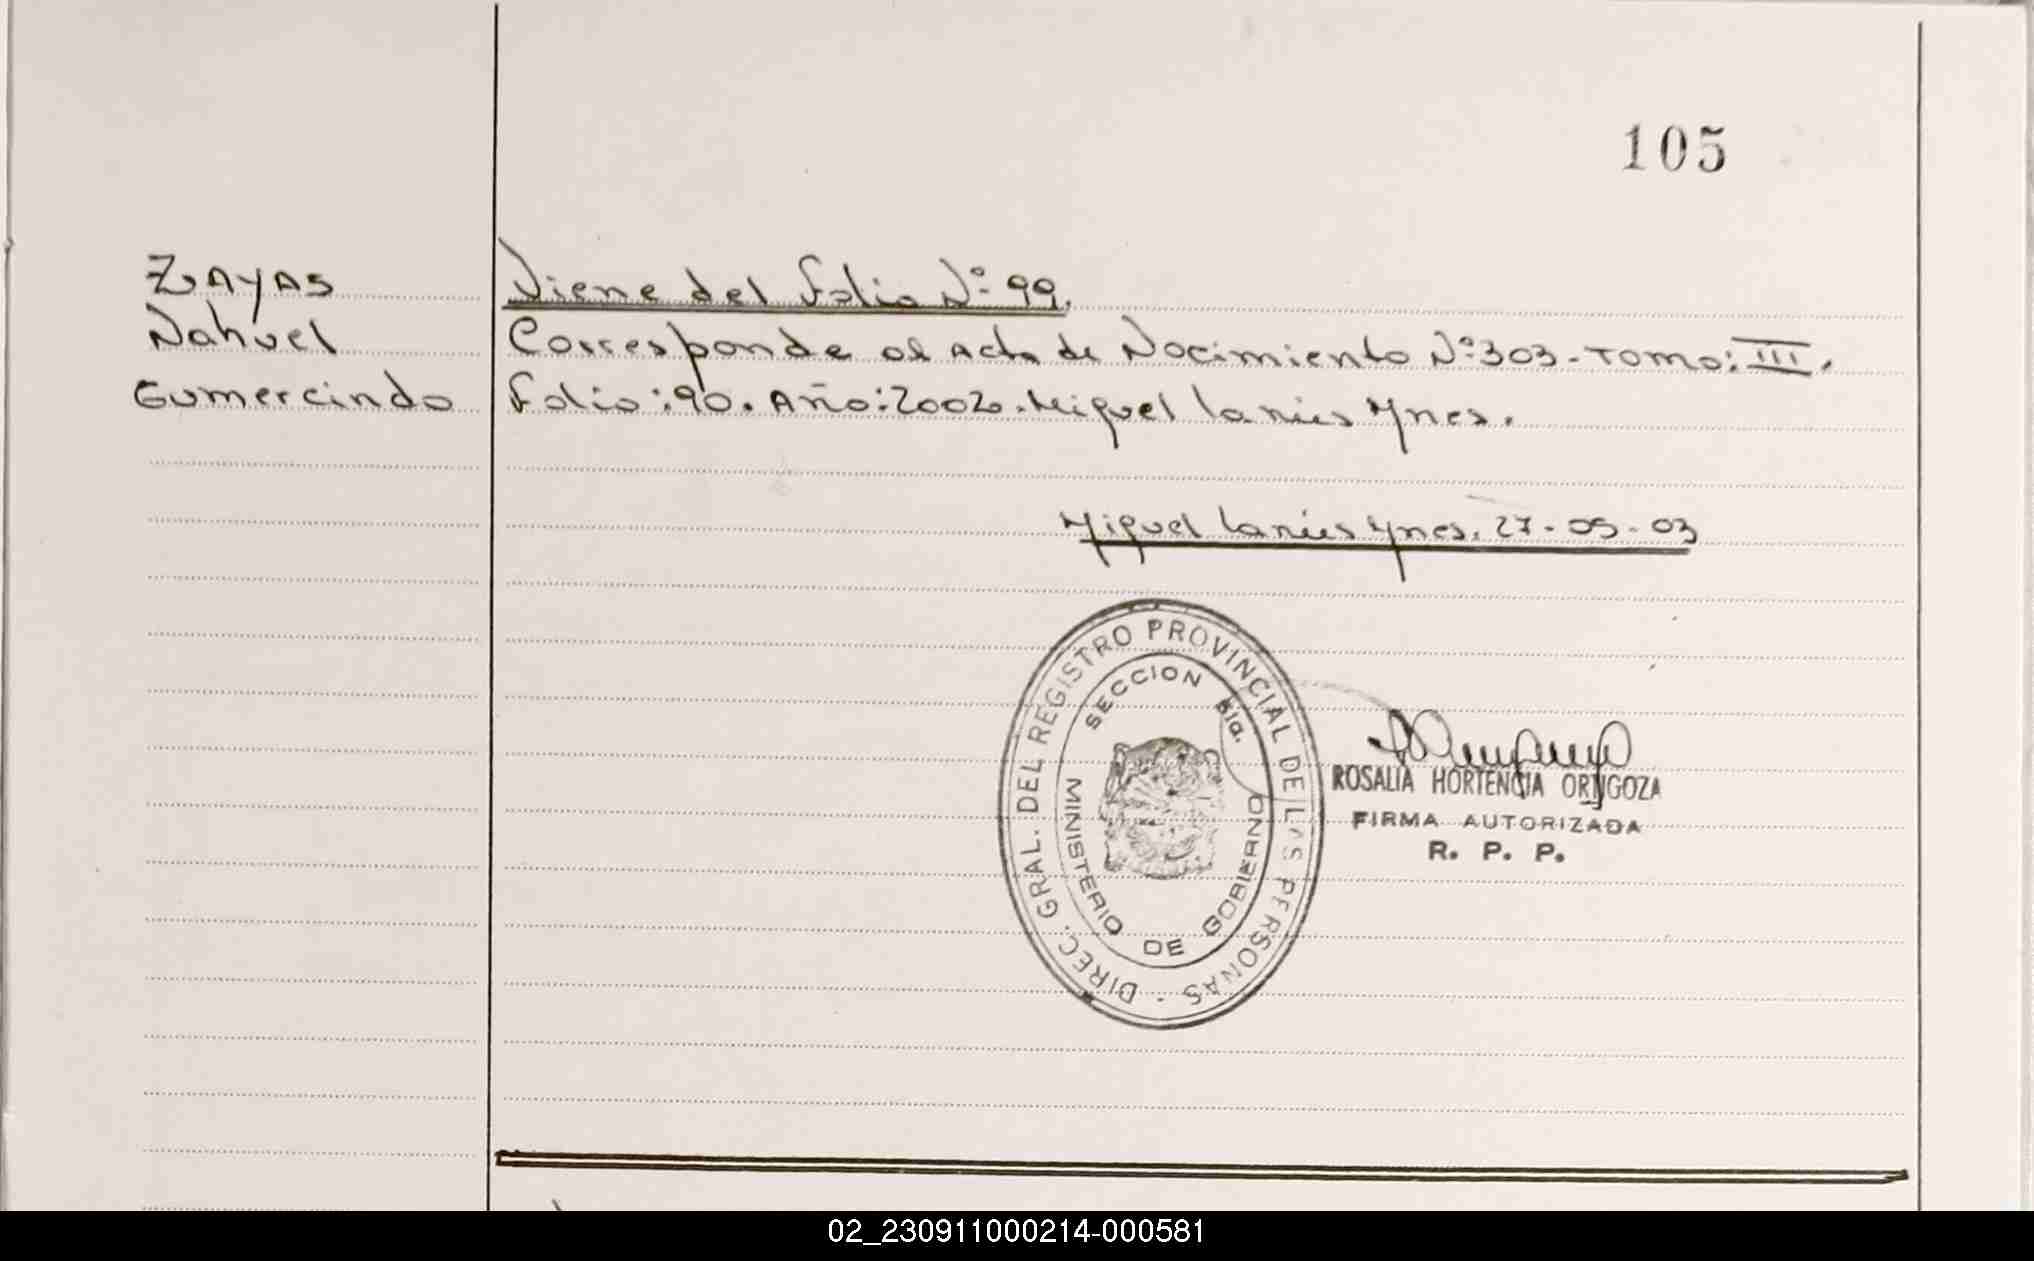 105
ZAYAS
Nahuel
Gumercindo
Viene del folio Nº 99.
Corresponde al Acta de Nacimiento Nº 303 - Tomo: III.
Folio: 90. Año: 2002. Miguel Ynes.
Miguel Ynes. 27-05-03
DIREC. GRAL. DEL REGISTRO PROVINCIAL DE LAS PERSONAS -
SECCION
MINISTERIO DE GOBIERNO
ROSALIA HORTENCIA ORTIGOZA
FIRMA AUTORIZADA
R. P. P.
02_230911000214-000581